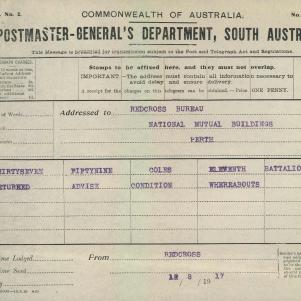 C. No. 2.
COMMONWEALTH OF AUSTRALIA.
No.
POSTMASTER-GENERAL'S DEPARTMENT, SOUTH AUSTR
This Message is presented for transmission subject to the Post and Telegraph Act and Regulations.
Stamps to be affixed here, and they must not overlap.
IMPORTANT.—The address must contain all information necessary to
avoid delay and ensure delivery.
A receipt for the charges on this telegram can be obtained.—Price ONE PENNY.
Addressed to
REDCROSS BUREAU
NATIONAL MUTUAL BUILDINGS
PERTH
HIRTYSEVEN FIFTYNINE COLES ELEVENTH BATTALIO
ETURNED ADVISE CONDITION WHEREABOUTS
me Lodged
From
REDCROSS
me Sent
18 / 8 / 19 17